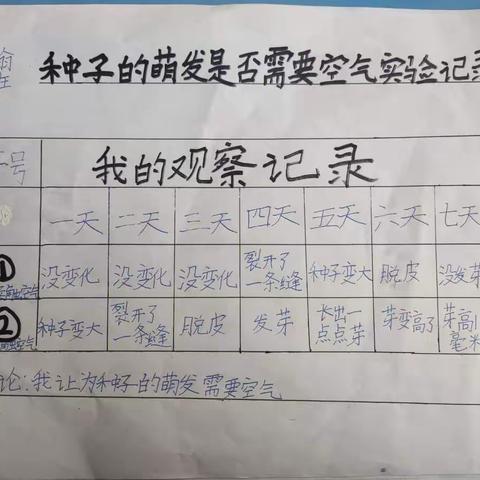 种子的萌发是否需要空气实验记录
号 我的观察记录
一天 二天 三天 四天 五天 六天 七天
① 没变化 没变化 没变化 裂开了一条缝 种子变大 脱皮 没发芽
② 种子变大 裂开了一条缝 脱皮 发芽 长出一点点芽 芽变高了 芽高 毫米
论:我认为种子的萌发需要空气